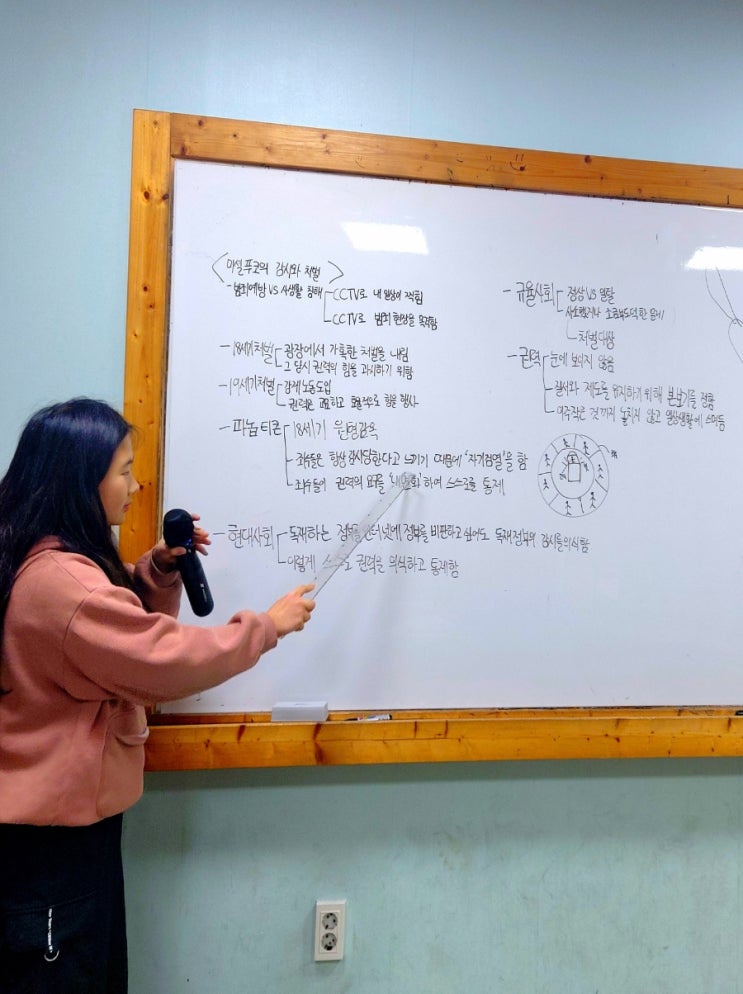 <미셸푸코의 감시와 처벌>
- 범죄예방 VS 사생활 침해
CCTV로 내 일상이 찍힘
CCTV로 범죄 현장을 목격함
- 18세기 처벌
광장에서 가혹한 처벌을 내림
그 당시 권력의 힘을 과시하기 위함
- 19세기 처벌
강제노동 도입
권력은 교묘하고 효율적으로 힘을 행사
- 파놉티콘
18세기 원형감옥
죄수들은 항상 감시당한다고 느끼기 때문에 '자기검열'을 함
죄수들이 권력의 요구를 '내면화'하여 스스로를 통제
- 현대사회
독재하는 정부를 인터넷에 정부를 비판하고 싶어도 독재 정부의 감시를 의식함
이렇게 스스로 권력을 의식하고 통제함
- 규율사회
정상 VS 일탈
사소했거나 조금 부도덕한
처벌대상
- 권력
눈에 보이지 않음
질서와 제도를 유지하기 위해 본보기를 정함
아주 작은 것까지 놓치지 않고 일상생활에 스며듦